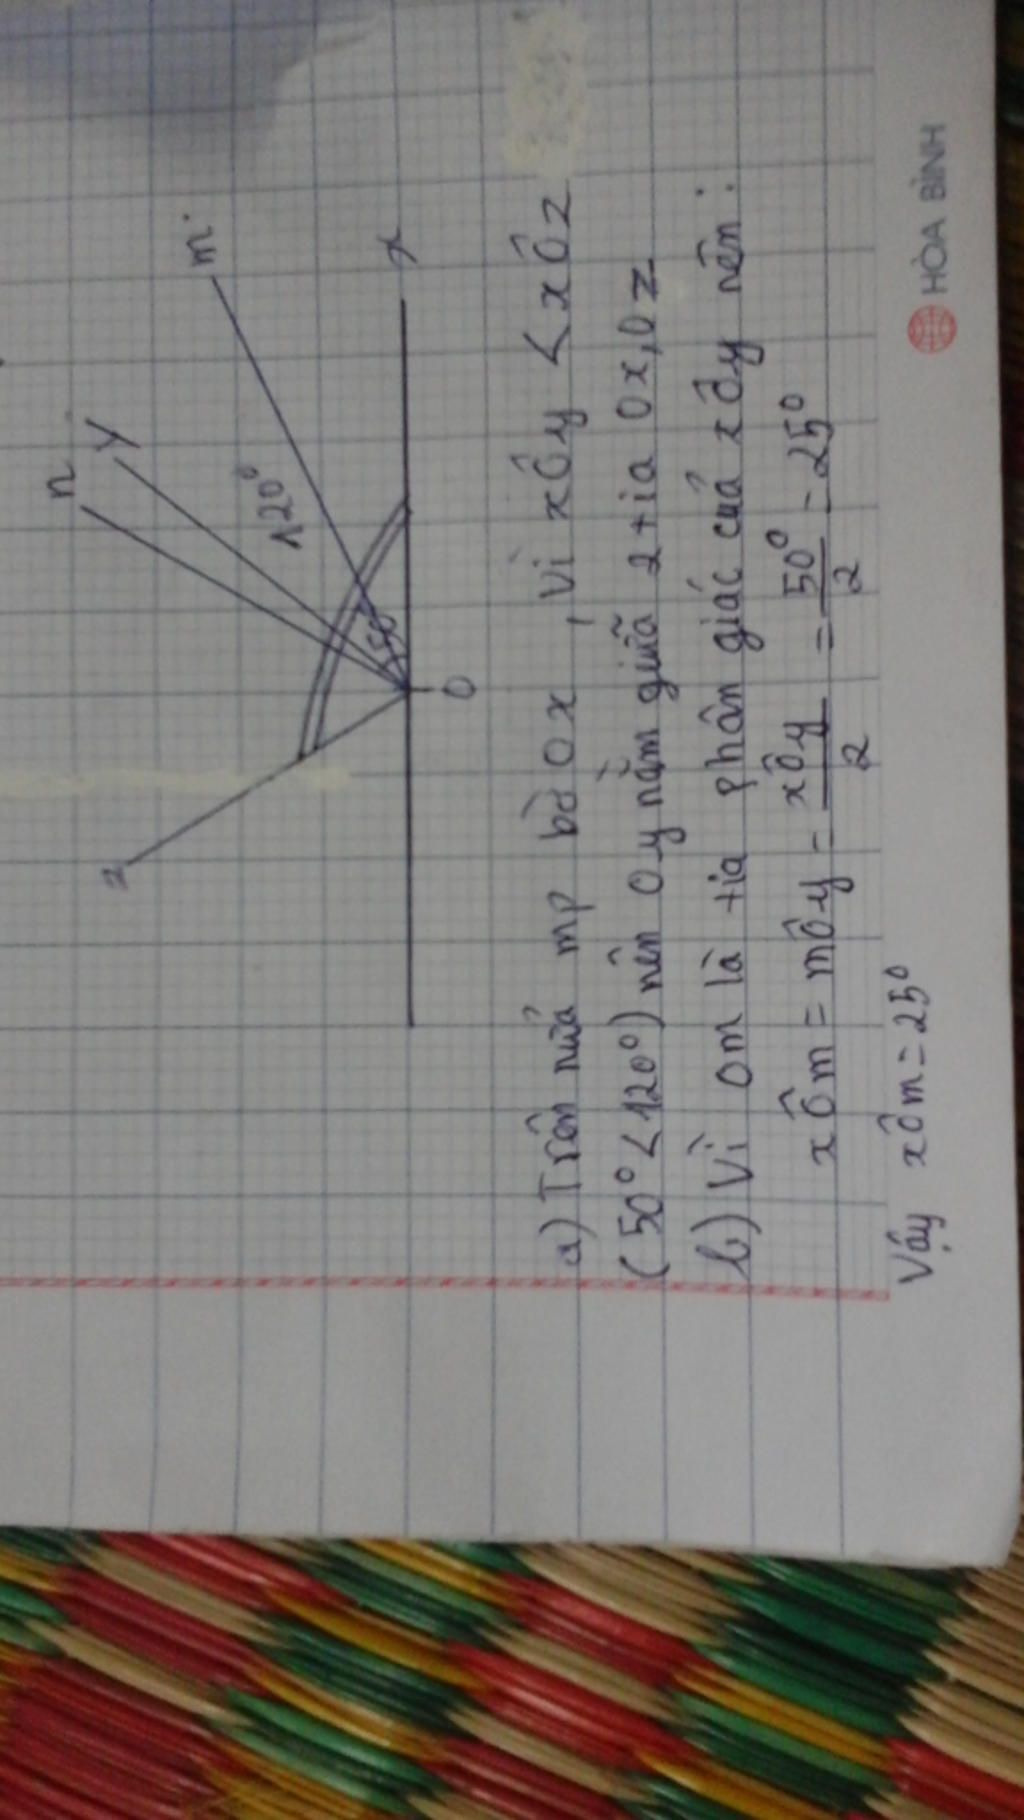 n
y
m
z
120°
50°
x
O
a) Trên nửa mp bờ Ox, Vì xÔy < xÔz
(50° < 120°) nên Oy nằm giữa 2 tia Ox, Oz
b) Vì Om là tia phân giác của xÔy nên:
xÔm = mÔy = xÔy/2 = 50°/2 = 25°
Vậy xÔm = 25°
HÒA BÌNH